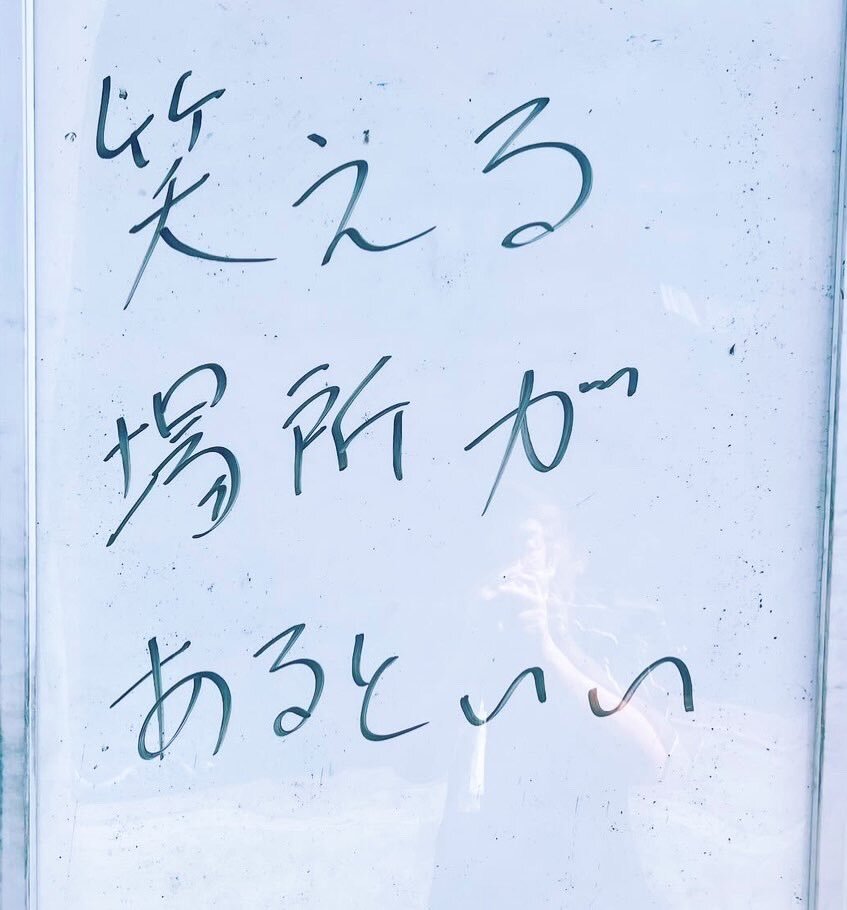 笑える
場所が
あるといい